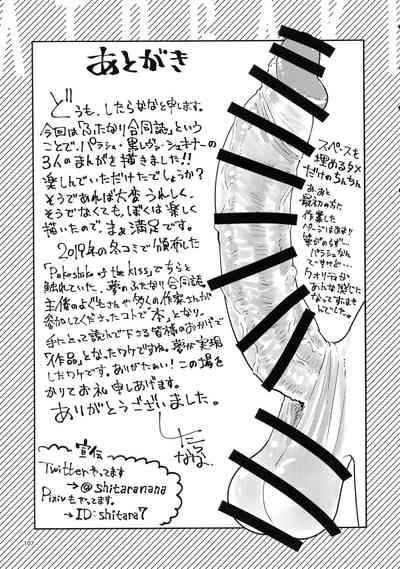 ATOGAKI
あとがき
どうも、したらななと申します。
今回は「ふたなり合同誌」という
ことで、パラシュ・黒しぐれ・シュキナーの
3人のまんがを描きました!!
楽しんでいただけたでしょうか?
そうであれば大変うれしく、
そうでなくても、ぼくは楽しく
描いたので、まぁ満足です。
2019年の冬コミで頒布した
「Pakoshiko of the kiss」でちらと
触れていた、夢のふたなり合同誌。
主催のよどもさんや多くの作家さんが
参加してくださったコトで「本」となり、
手にとって読んで下さる皆様のおかげで
「作品」となったワケですね。夢が実現
したワケです。ありがたぁい!この場を
かりてお礼申しあげます。
ありがとうございました。
スペースを
埋めるタメ
だけのちんちん
ああと
最初の方に
作業した
ページはあまり
筆がのらず…
パラシュなん
ですけど…
クオリティが
あんな感じに
なってすいませ
んでした。
宣伝
Twitterやってます
→@shitaranana
Pixivもやってます。
→ID:shitara7